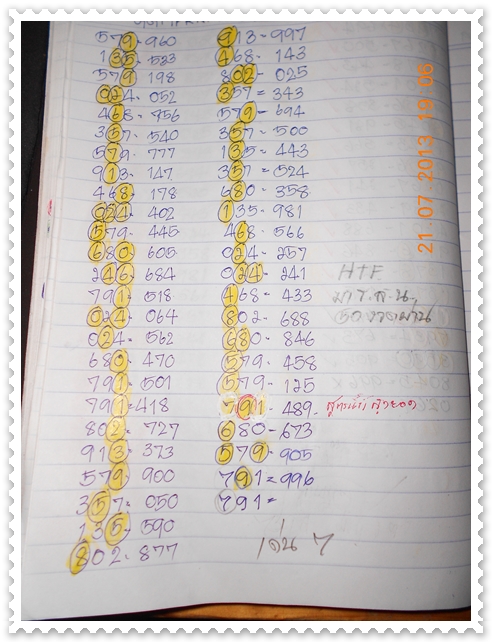 579-960
135-533
579 198
024-052
468-756
357-540
579-777
913-147
468-178
024-402
579-445
680-605
246-684
791-518
024-064
024-562
680-470
791-501
791=418
802-727
913-373
579-900
357-050
135-590
802-877
913-997
468-143
802-025
357=343
579-694
357-500
135=443
357=524
680-358
135-981
468-566
024-257
024-241
468-433
802-688
680-846
579-458
579-125
791-489
680-673
579-905
791=996
791=
HTF
เด่น 7
21.07.2013 19:06